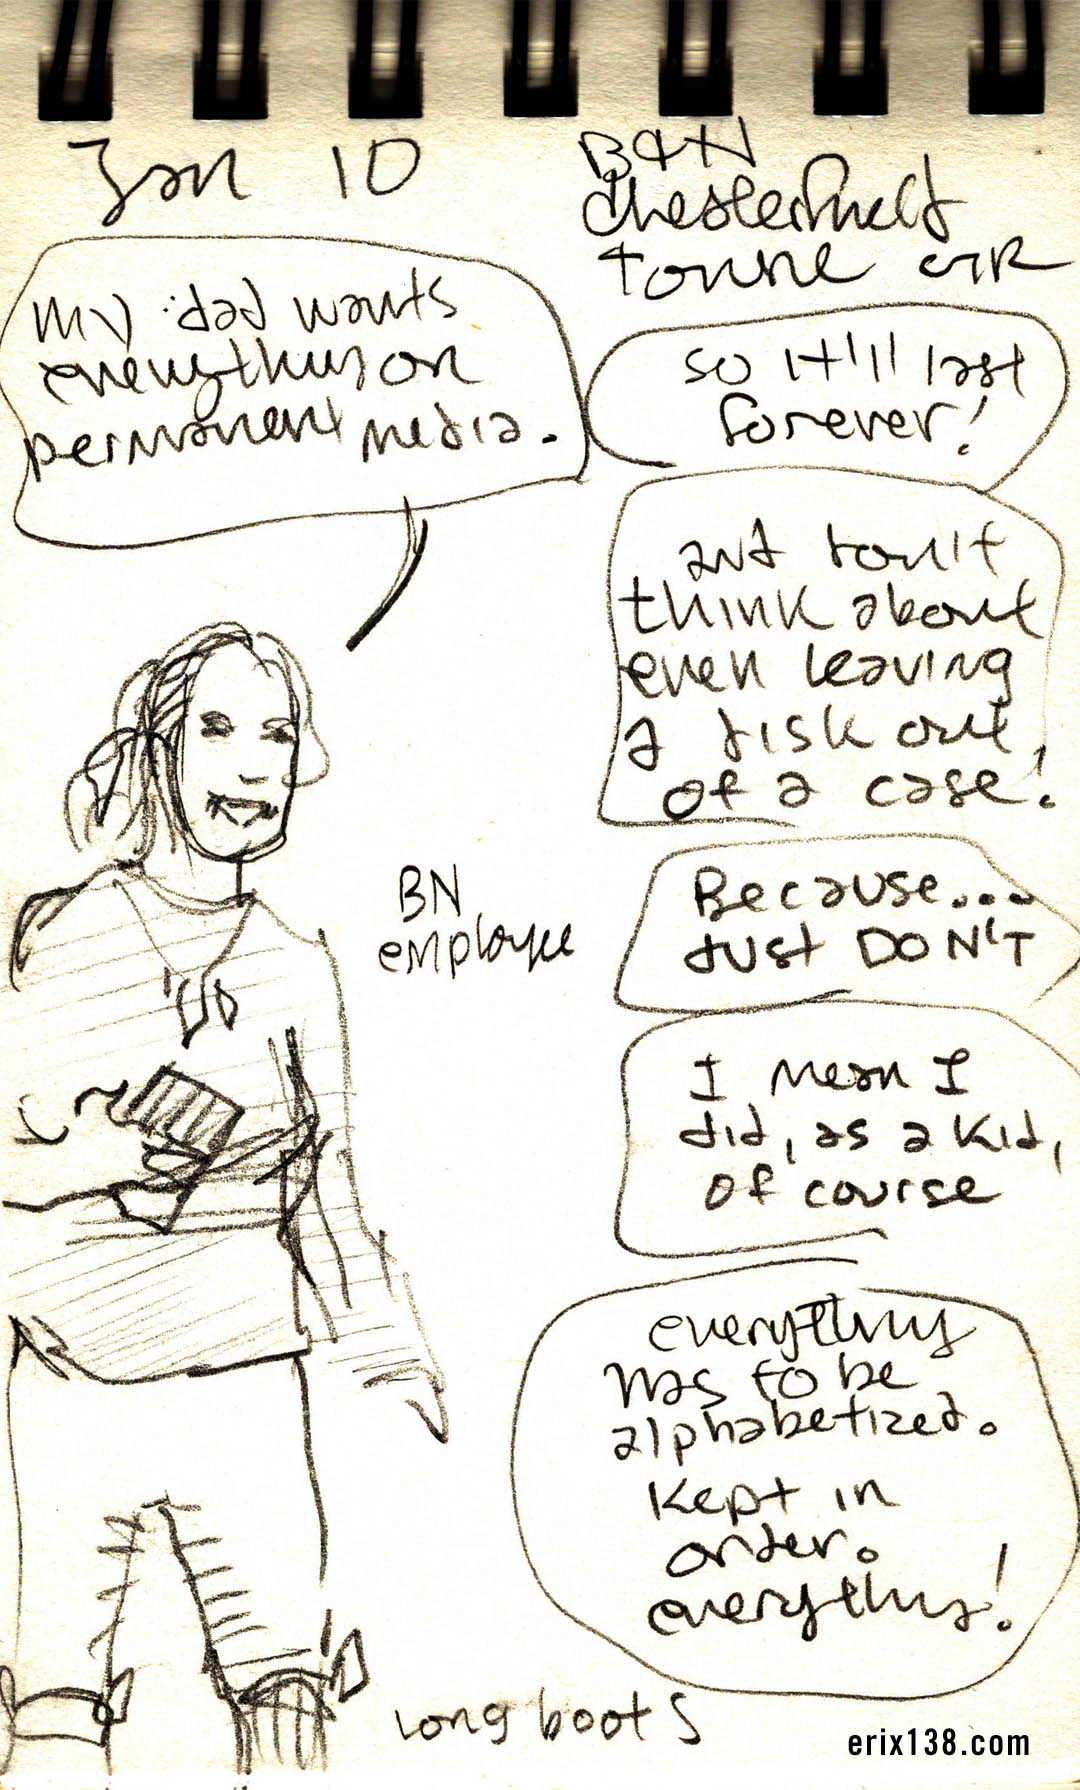 Jan 10
B&N
Chesterfield
towne ctr
my dad wants
everything on
permanent media.
so it'll last
forever!
and don't
think about
even leaving
a disk out
of a case!
Because...
Just DON'T
I mean I
did, as a kid,
of course
everything
was to be
alphabetized.
Kept in
order.
everything!
BN
employee
long boots
erix138.com